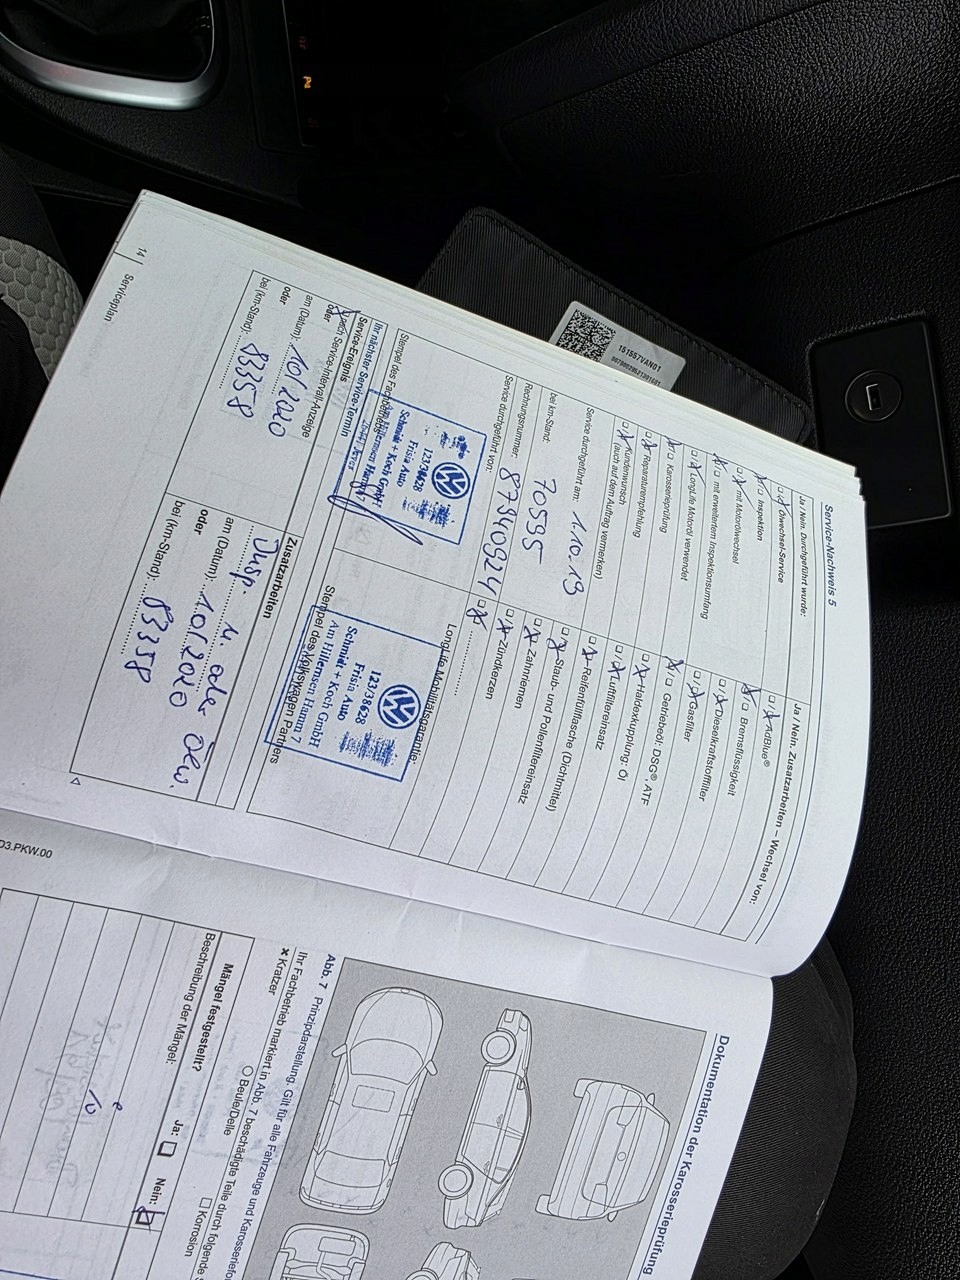 Service-Nachweis 5
Ja / Nein. Durchgeführt wurde:
Ölwechsel-Service
Inspektion
mit Motorölwechsel
mit erweitertem Inspektionsumfang
LongLife Motoröl verwendet
Karosserieprüfung
Reparaturempfehlung
Kundenwunsch
(auch auf dem Auftrag vermerken)
Service durchgeführt am: 1.10.19
bei km-Stand: 70595
Rechnungsnummer: 87340924
Service durchgeführt von:
123/38628
Frisia Auto
Schmidt + Koch GmbH
Stempel des Fachbetriebs
Ja / Nein. Zusatzarbeiten – Wechsel von:
AdBlue®
Bremsflüssigkeit
Dieselkraftstofffilter
Gasfilter
Getriebeöl: DSG®, ATF
Haldexkupplung: Öl
Luftfiltereinsatz
Reifenfüllflasche (Dichtmittel)
Staub- und Pollenfiltereinsatz
Zahnriemen
Zündkerzen
LongLife Mobilitätsgarantie:
123/38628
Frisia Auto
Schmidt + Koch GmbH
Am Hillernsen Hamm 7
Stempel des Volkswagen Partners
Ihr nächster Service-Termin
Service-Ereignis
nach Service-Intervall-Anzeige
oder
am (Datum): 10/2020
oder
bei (km-Stand): 83358
Zusatzarbeiten
Insp.
am (Datum): 10/2020
oder
bei (km-Stand): 83358
14 Serviceplan
Dokumentation der Karosserieprüfung
Abb. 7 Prinzipdarstellung. Gilt für alle Fahrzeuge und
Ihr Fachbetrieb markiert in Abb. 7 beschädigte Teile durch folgende
× Kratzer
O Beule/Delle
□ Korrosion
Mängel festgestellt?
Ja:
Nein:
Beschreibung der Mängel:
D3.PKW.00
151557VAN01